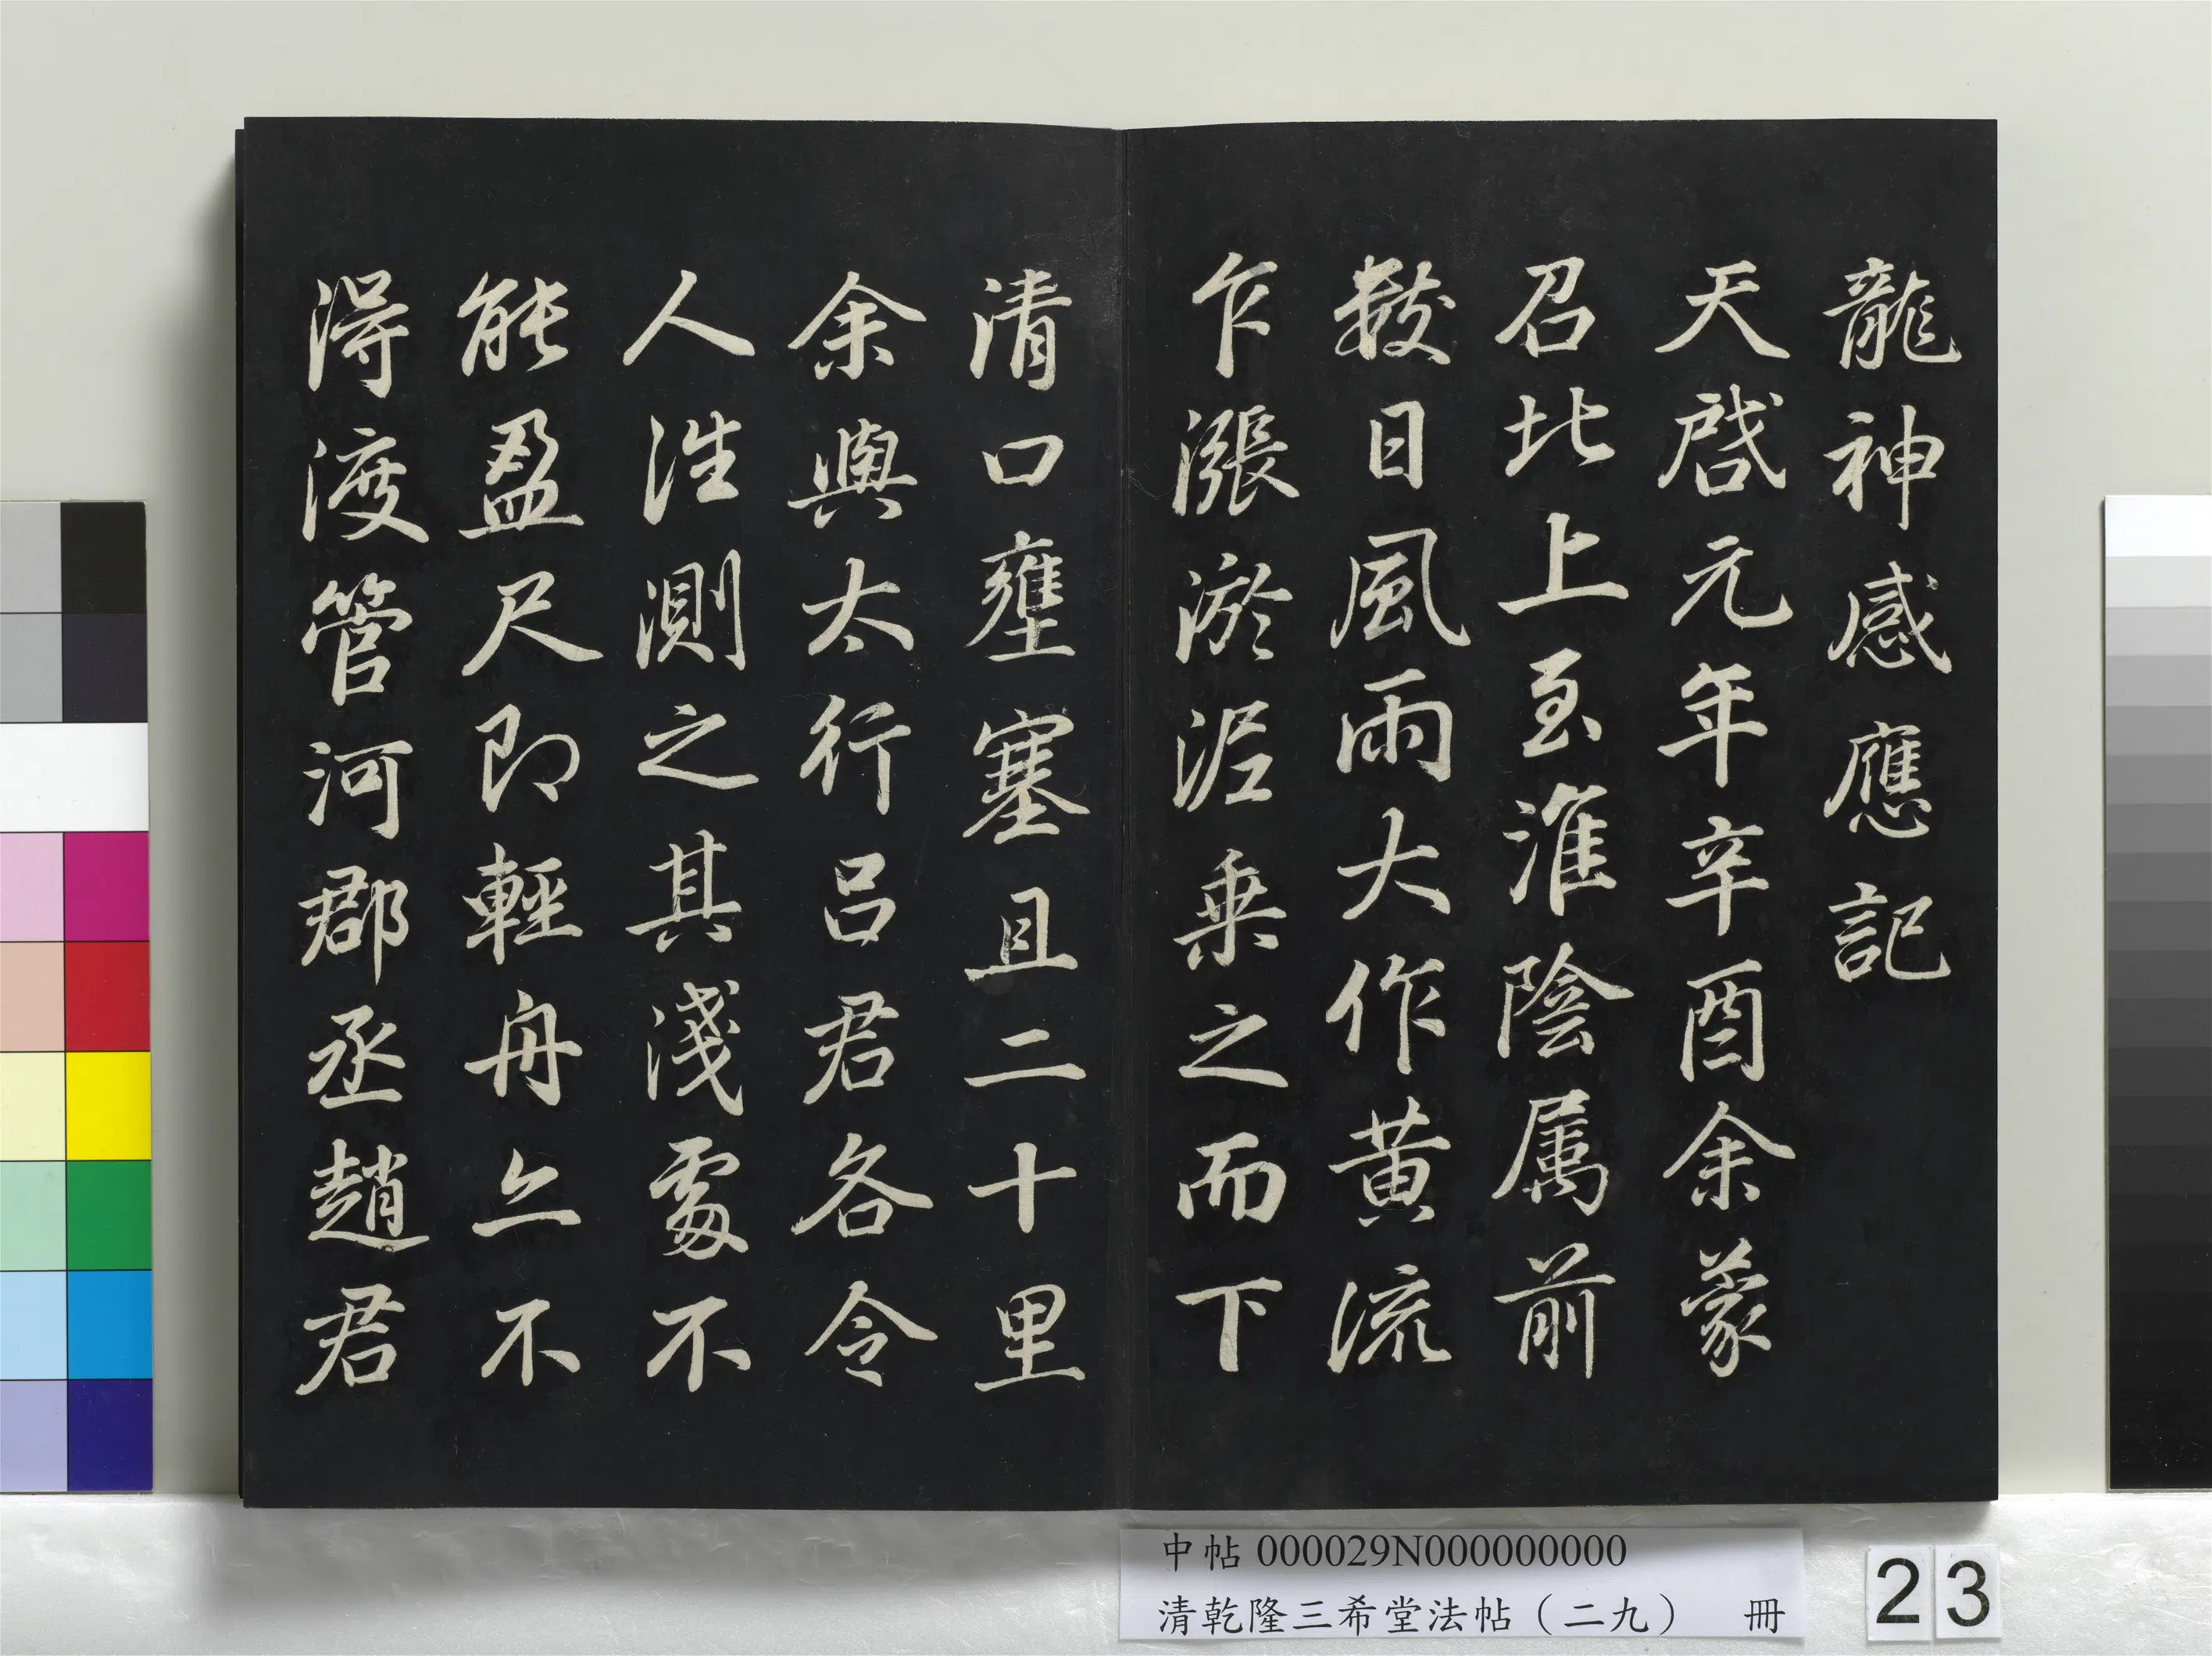 龍神感應記
天啓元年辛酉余蒙
召北上至淮陰属前
數日風雨大作黄流
乍漲淤泥乗之而下
清口壅塞且二十里
余與太行呂君各令
人淮測之其淺處不
能盈尺即輕舟亦不
得渡管河郡丞趙君
中帖 000029N000000000
清乾隆三希堂法帖（二九） 冊
23